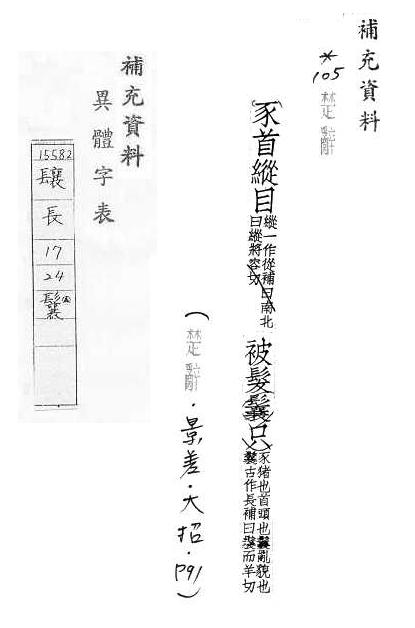 補充資料
*105
楚辭
豕首縱目
縱一作從補曰南北
曰縱將容切
被髮鬤只
豕猪也首頭也鬤亂貌也
鬤古作長補曰鬤而羊切
(楚辭·景差·大招·P91)
補充資料
異體字表
15582
镸襄
長
17
24
鬤